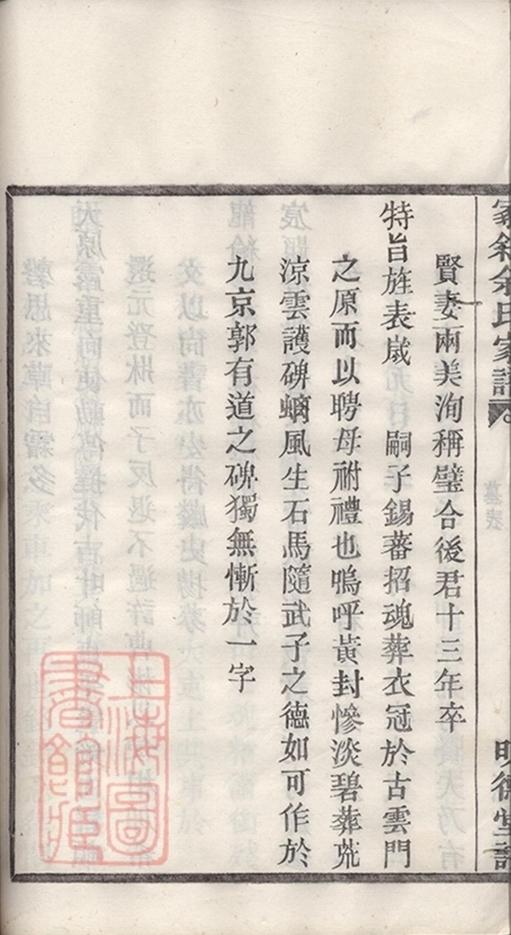 余氏家譜
墓表
明德堂譜
賢妻兩美洵稱璧合後君十三年卒
特旨旌表歲　嗣子錫蕃招魂葬衣冠於古雲門
之原而以聘母祔禮也嗚呼黃封慘淡碧葬荒
涼雲護碑螭風生石馬隨武子之德如可作於
九京郭有道之碑獨無慚於一字
上海圖書館藏